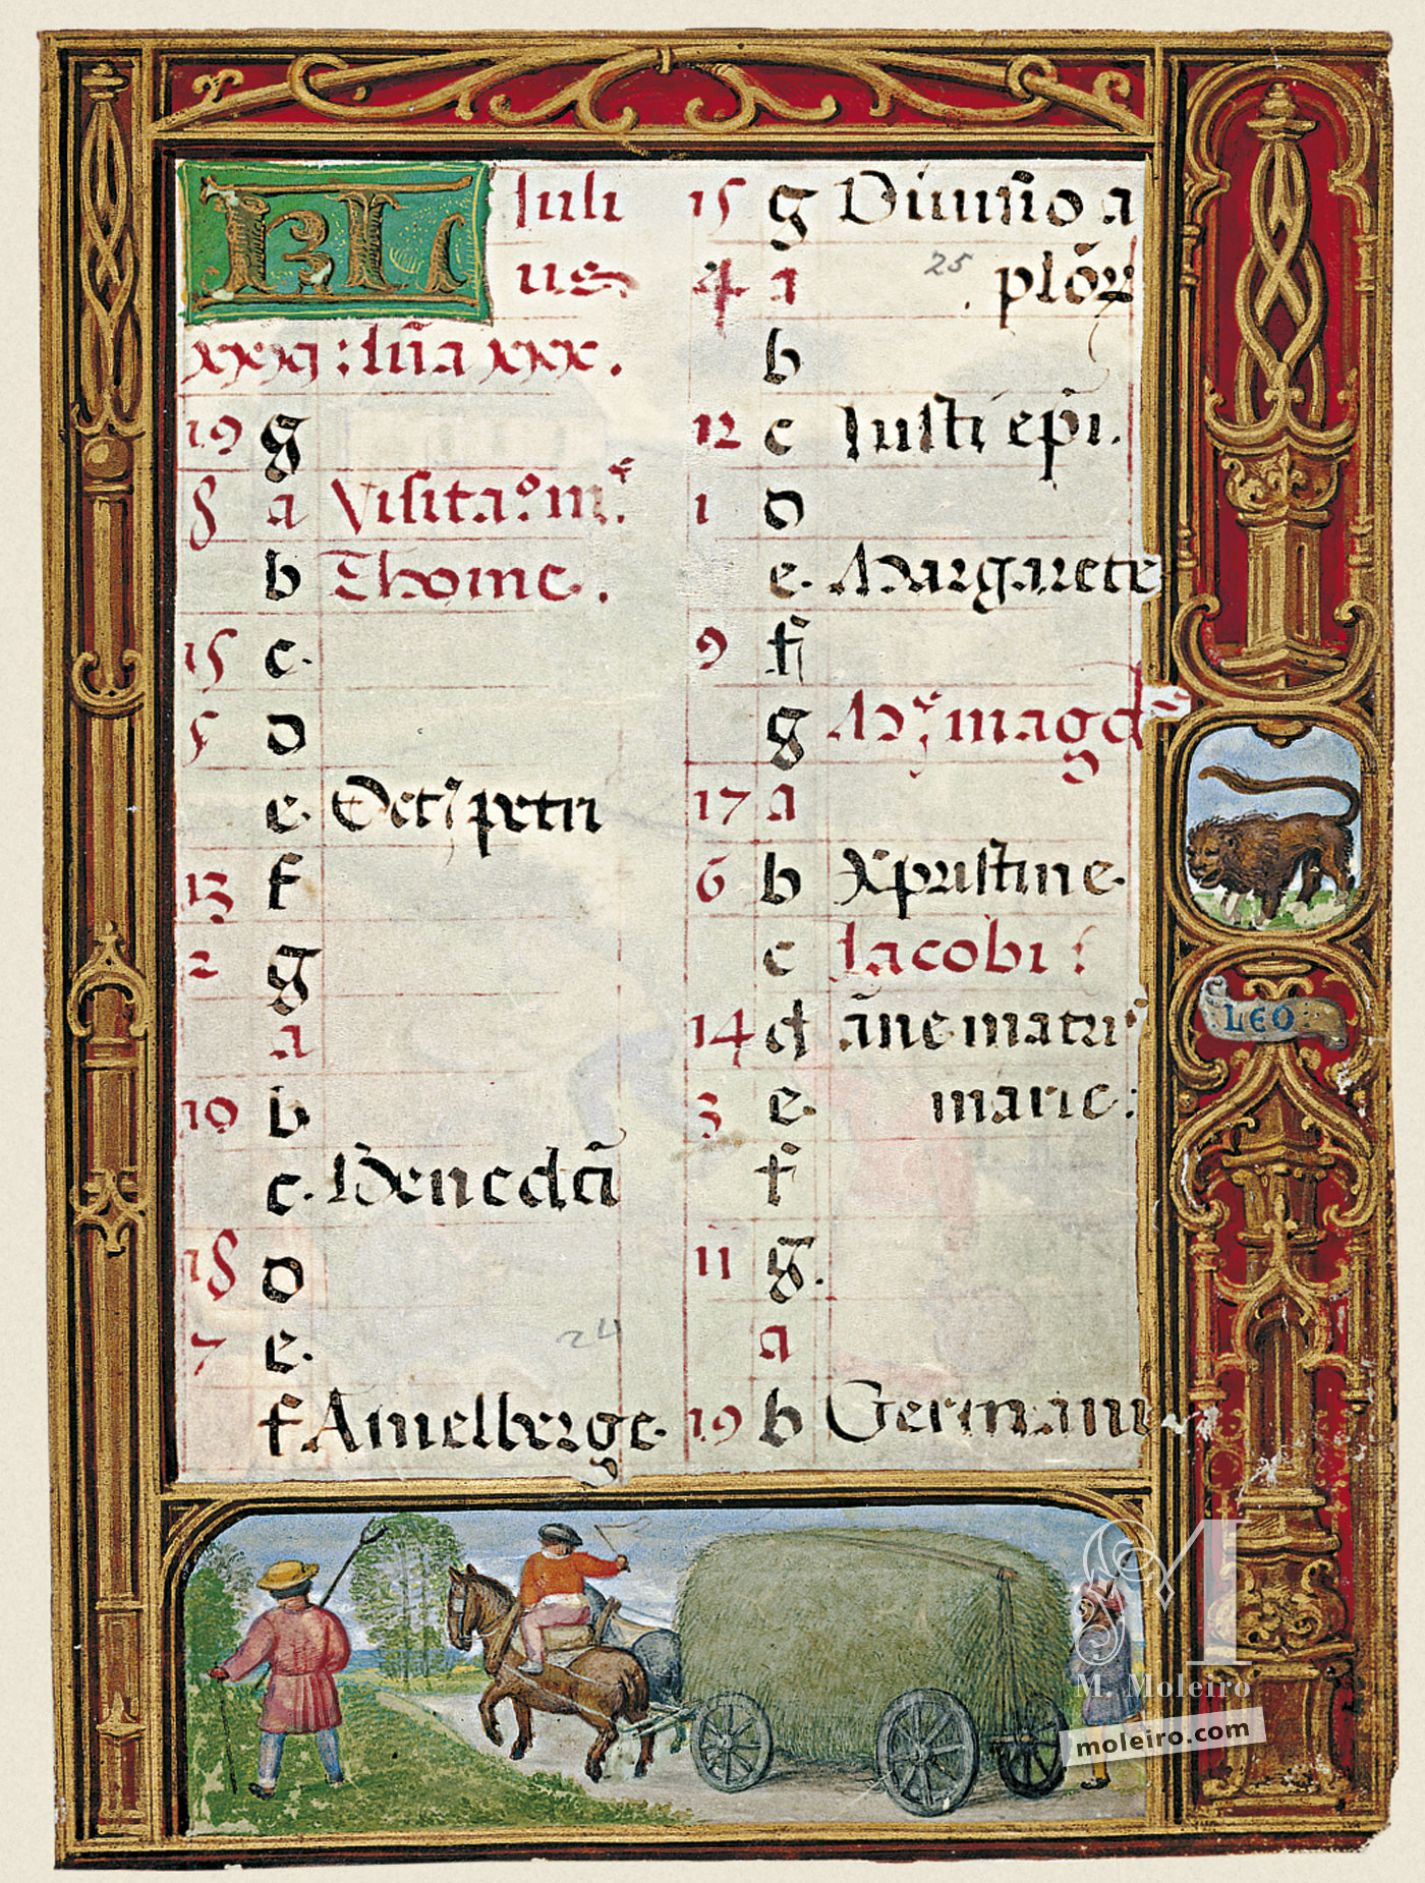 KL Iuli
us.
xxxi : lūa xxx.
19 g
8 a Visita.o m.e
b Thome.
15 c.
5 d
e. Oct' petri
13 f
2 g
a
10 b
c. Benedcti
18 d
7 e.
f Amelberge.
24
15 g Diuisio a
4 a plōꝝ
25
b
12 c Iusti ep̄i.
1 d
e. Margarete
9 f
g M.e magd
17 a
6 b Xpristine.
c Iacobi :
14 d āne matris
3 e. marie :
f
11 g.
a
19 b Germani
LEO
M. Moleiro
moleiro.com